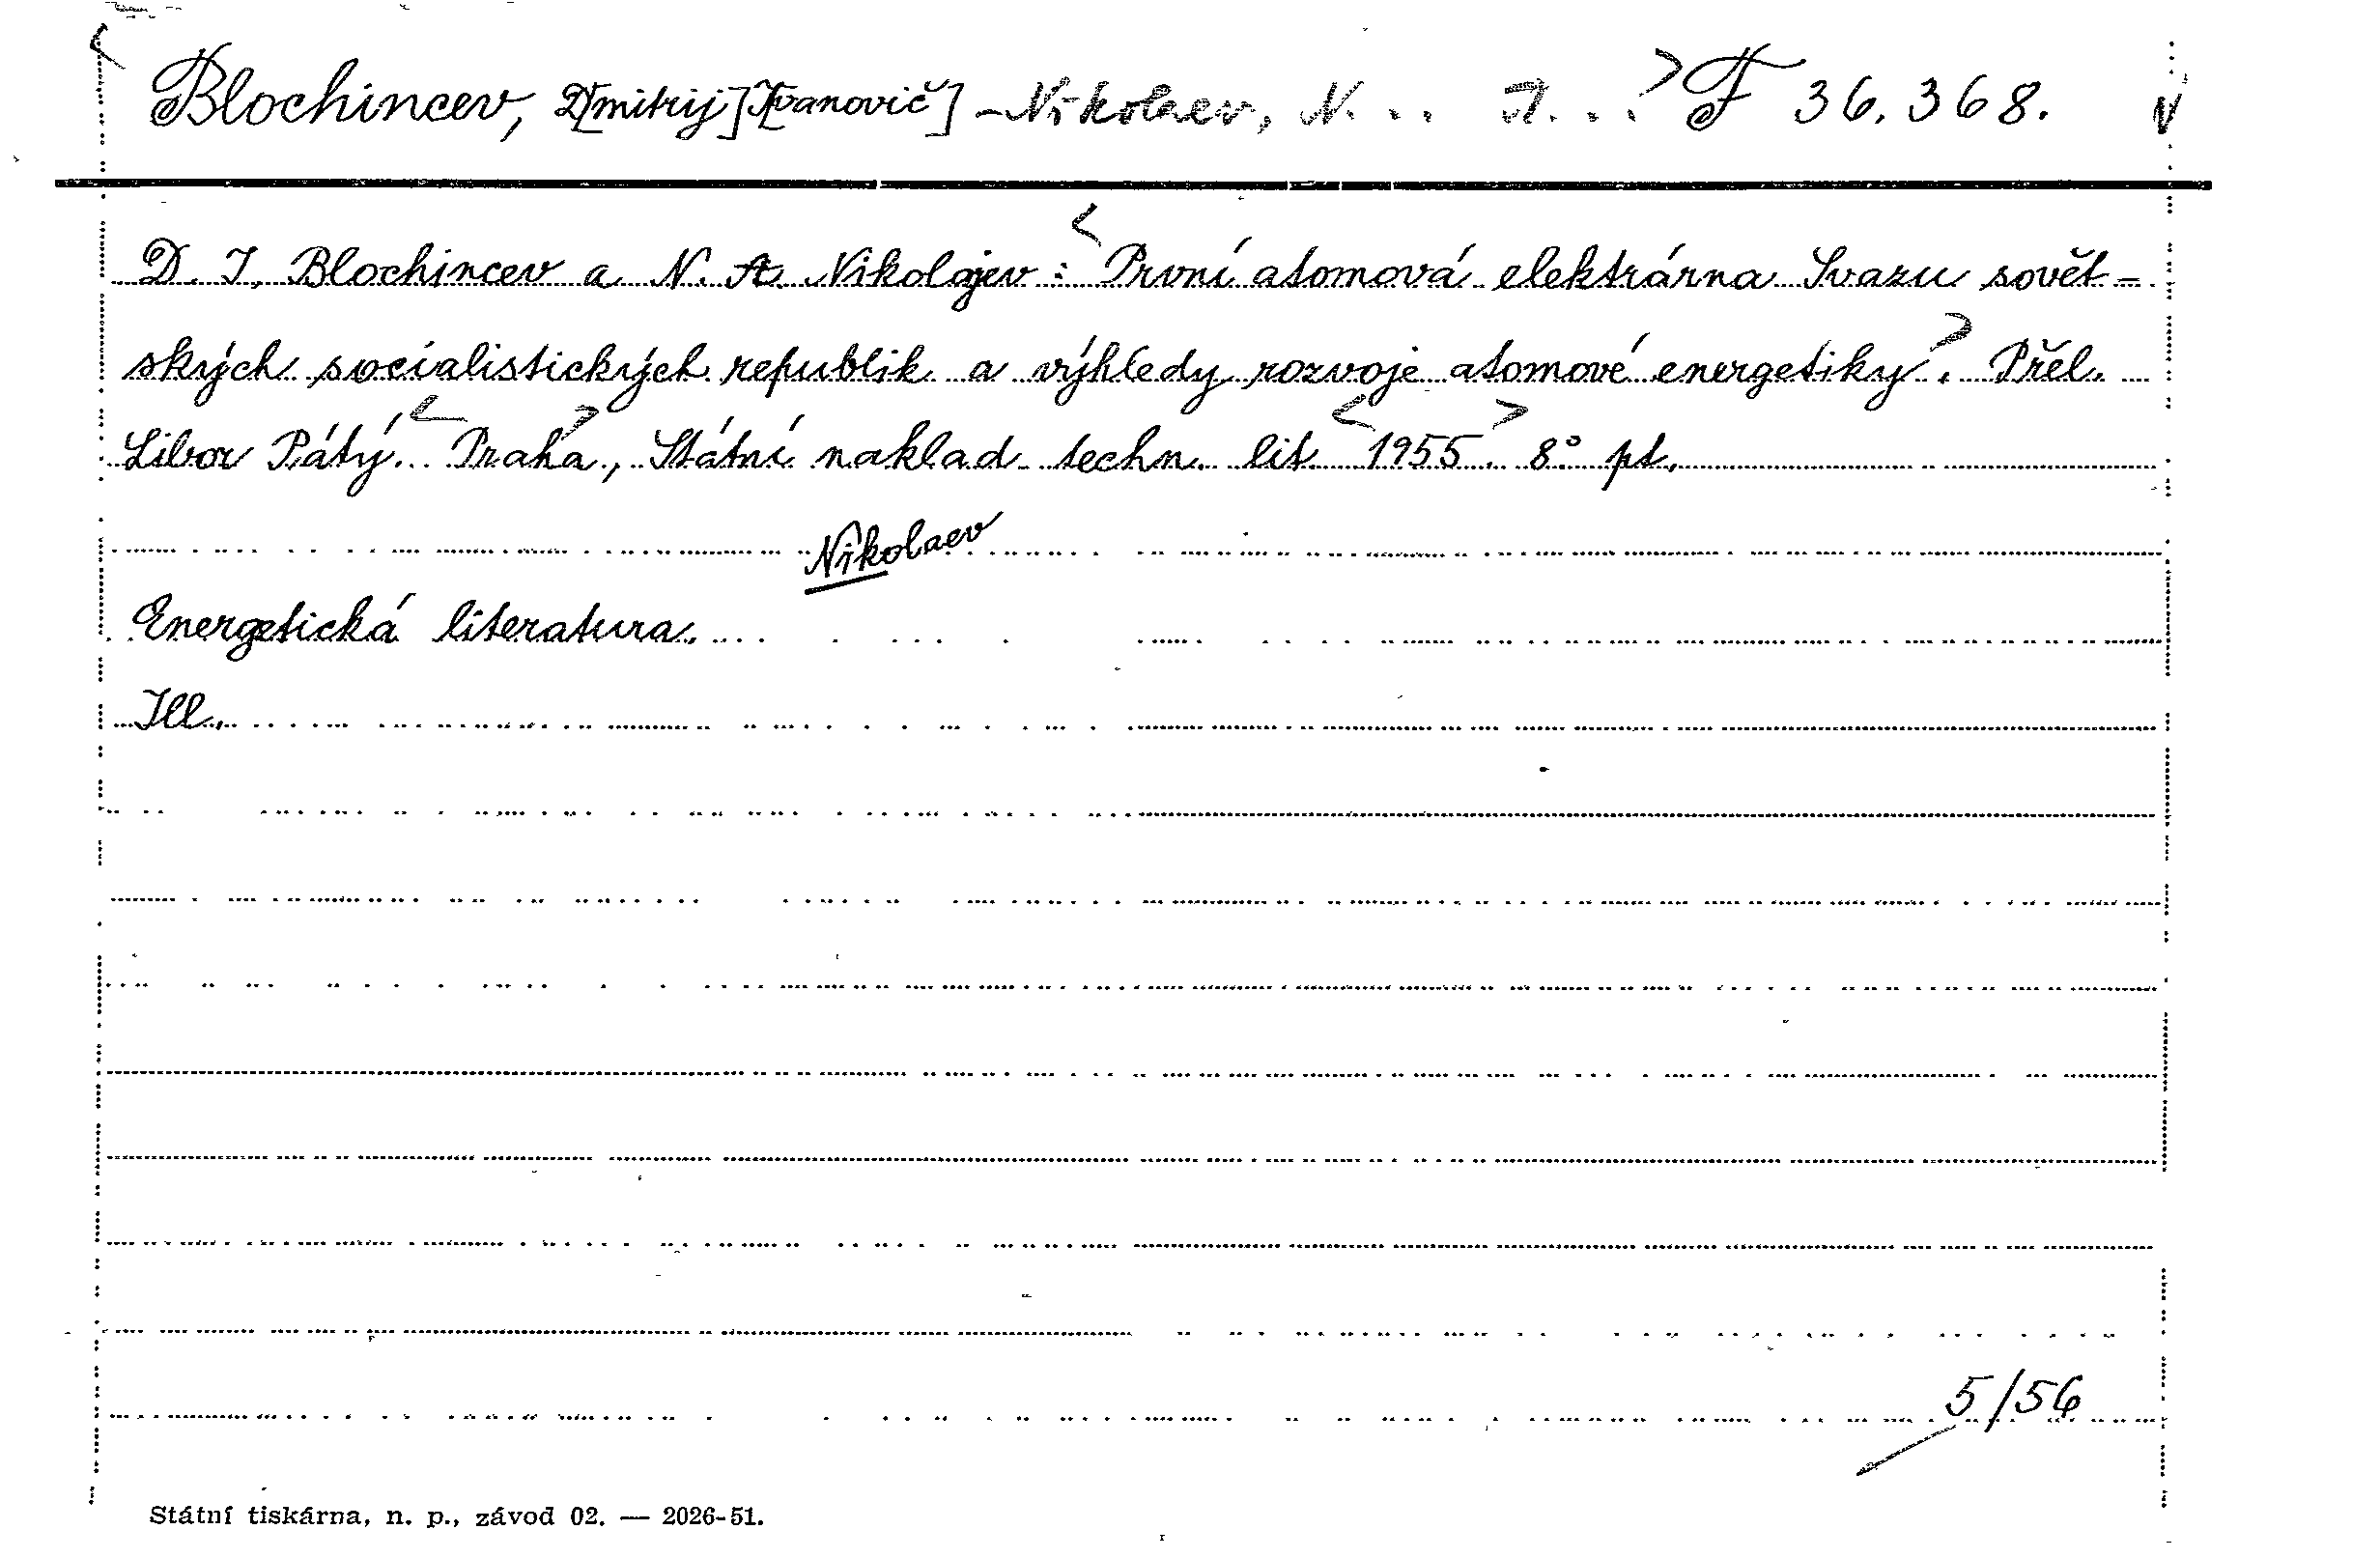 <Blochincev, D[mitrij] I[vanovič] - Nikolaev, N... A...> F 36.368.
D. I. Blochincev a N. A. Nikolajev: <První atomová elektrárna Svazu sovět-
ských socialistických republik a výhledy rozvoje atomové energetiky>. Přel.
Libor Pátý. <Praha>, Státní naklad. techn. lit. <1955>. 8° pt.
Nikolaev
Energetická literatura.
Ill.
5/56
Státní tiskárna, n. p., závod 02. — 2026-51.